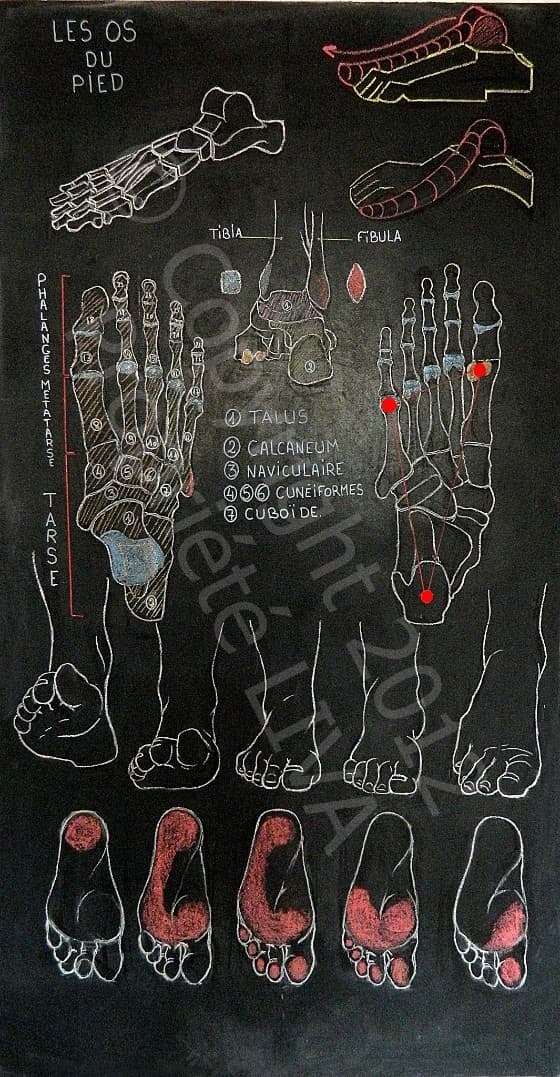 LES OS
DU
PIED
TIBIA
FIBULA
PHALANGES
METATARSE
TARSE
① TALUS
② CALCANEUM
③ NAVICULAIRE
④⑤⑥ CUNÉIFORMES
⑦ CUBOÏDE.
© Copyright 2012
Propriété LIVA